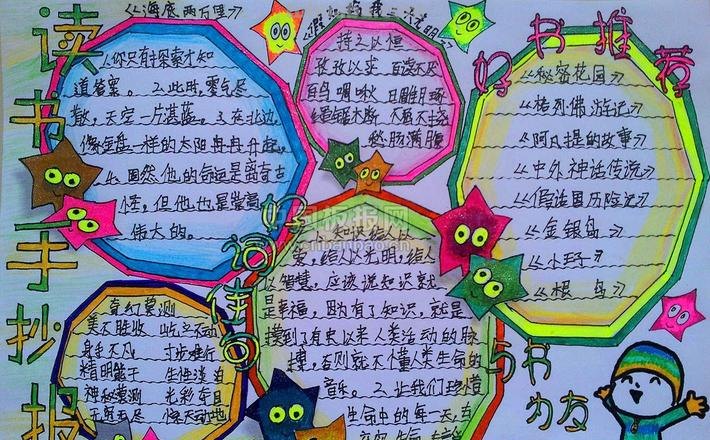 读书手抄报
《海底两万里》
《假如给我三天光明》
好书推荐
1.你只有探索才知
道答案。2.此时,雾气尽
散,天空一片湛蓝。3.在北边,
像金盘一样的太阳冉冉升起,
4.固然他的命运是离奇古
怪,但他也是崇高
伟大的。
持之以恒
孜孜以求 百读不厌
百鸟啁啾 日雕月琢
绿意
愁肠满腹
《秘密花园》
《格列佛游记》
《阿凡提的故事》
《中外神话传说》
《假话国历险记》
《金银岛》
《小王子》
《根鸟》
好词佳句
奇幻莫测
美不胜收 岿然不动
身手不凡 寸步难行
精明能干 生性淡泊
神秘莫测 光彩夺目
无穷无尽 惊天动地
1.知识给人以
爱,给人以光明,给人
以智慧,应该说知识就
是幸福,因为有了知识,就是
摸到了有史以来人类活动的脉
搏,否则就不懂人类生命的
音乐。2.让我们珍惜
生命中的每一天,在
与书
为友